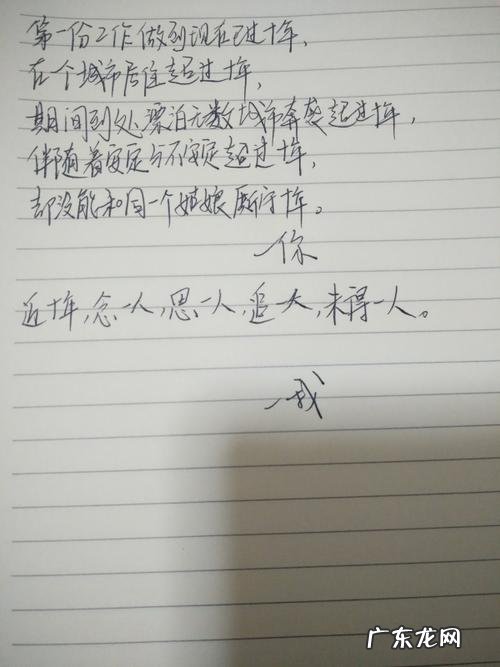 第一份工作做到现在已过十年，
在个城市居住超过十年，
期间到处漂泊无数城市奔袭超过十年，
伴随着安定与不安定超过十年，
却没能和同一个姑娘厮守十年。
—你
近十年，念一人，思一人，追一人，未得一人。
—我
广东龙网